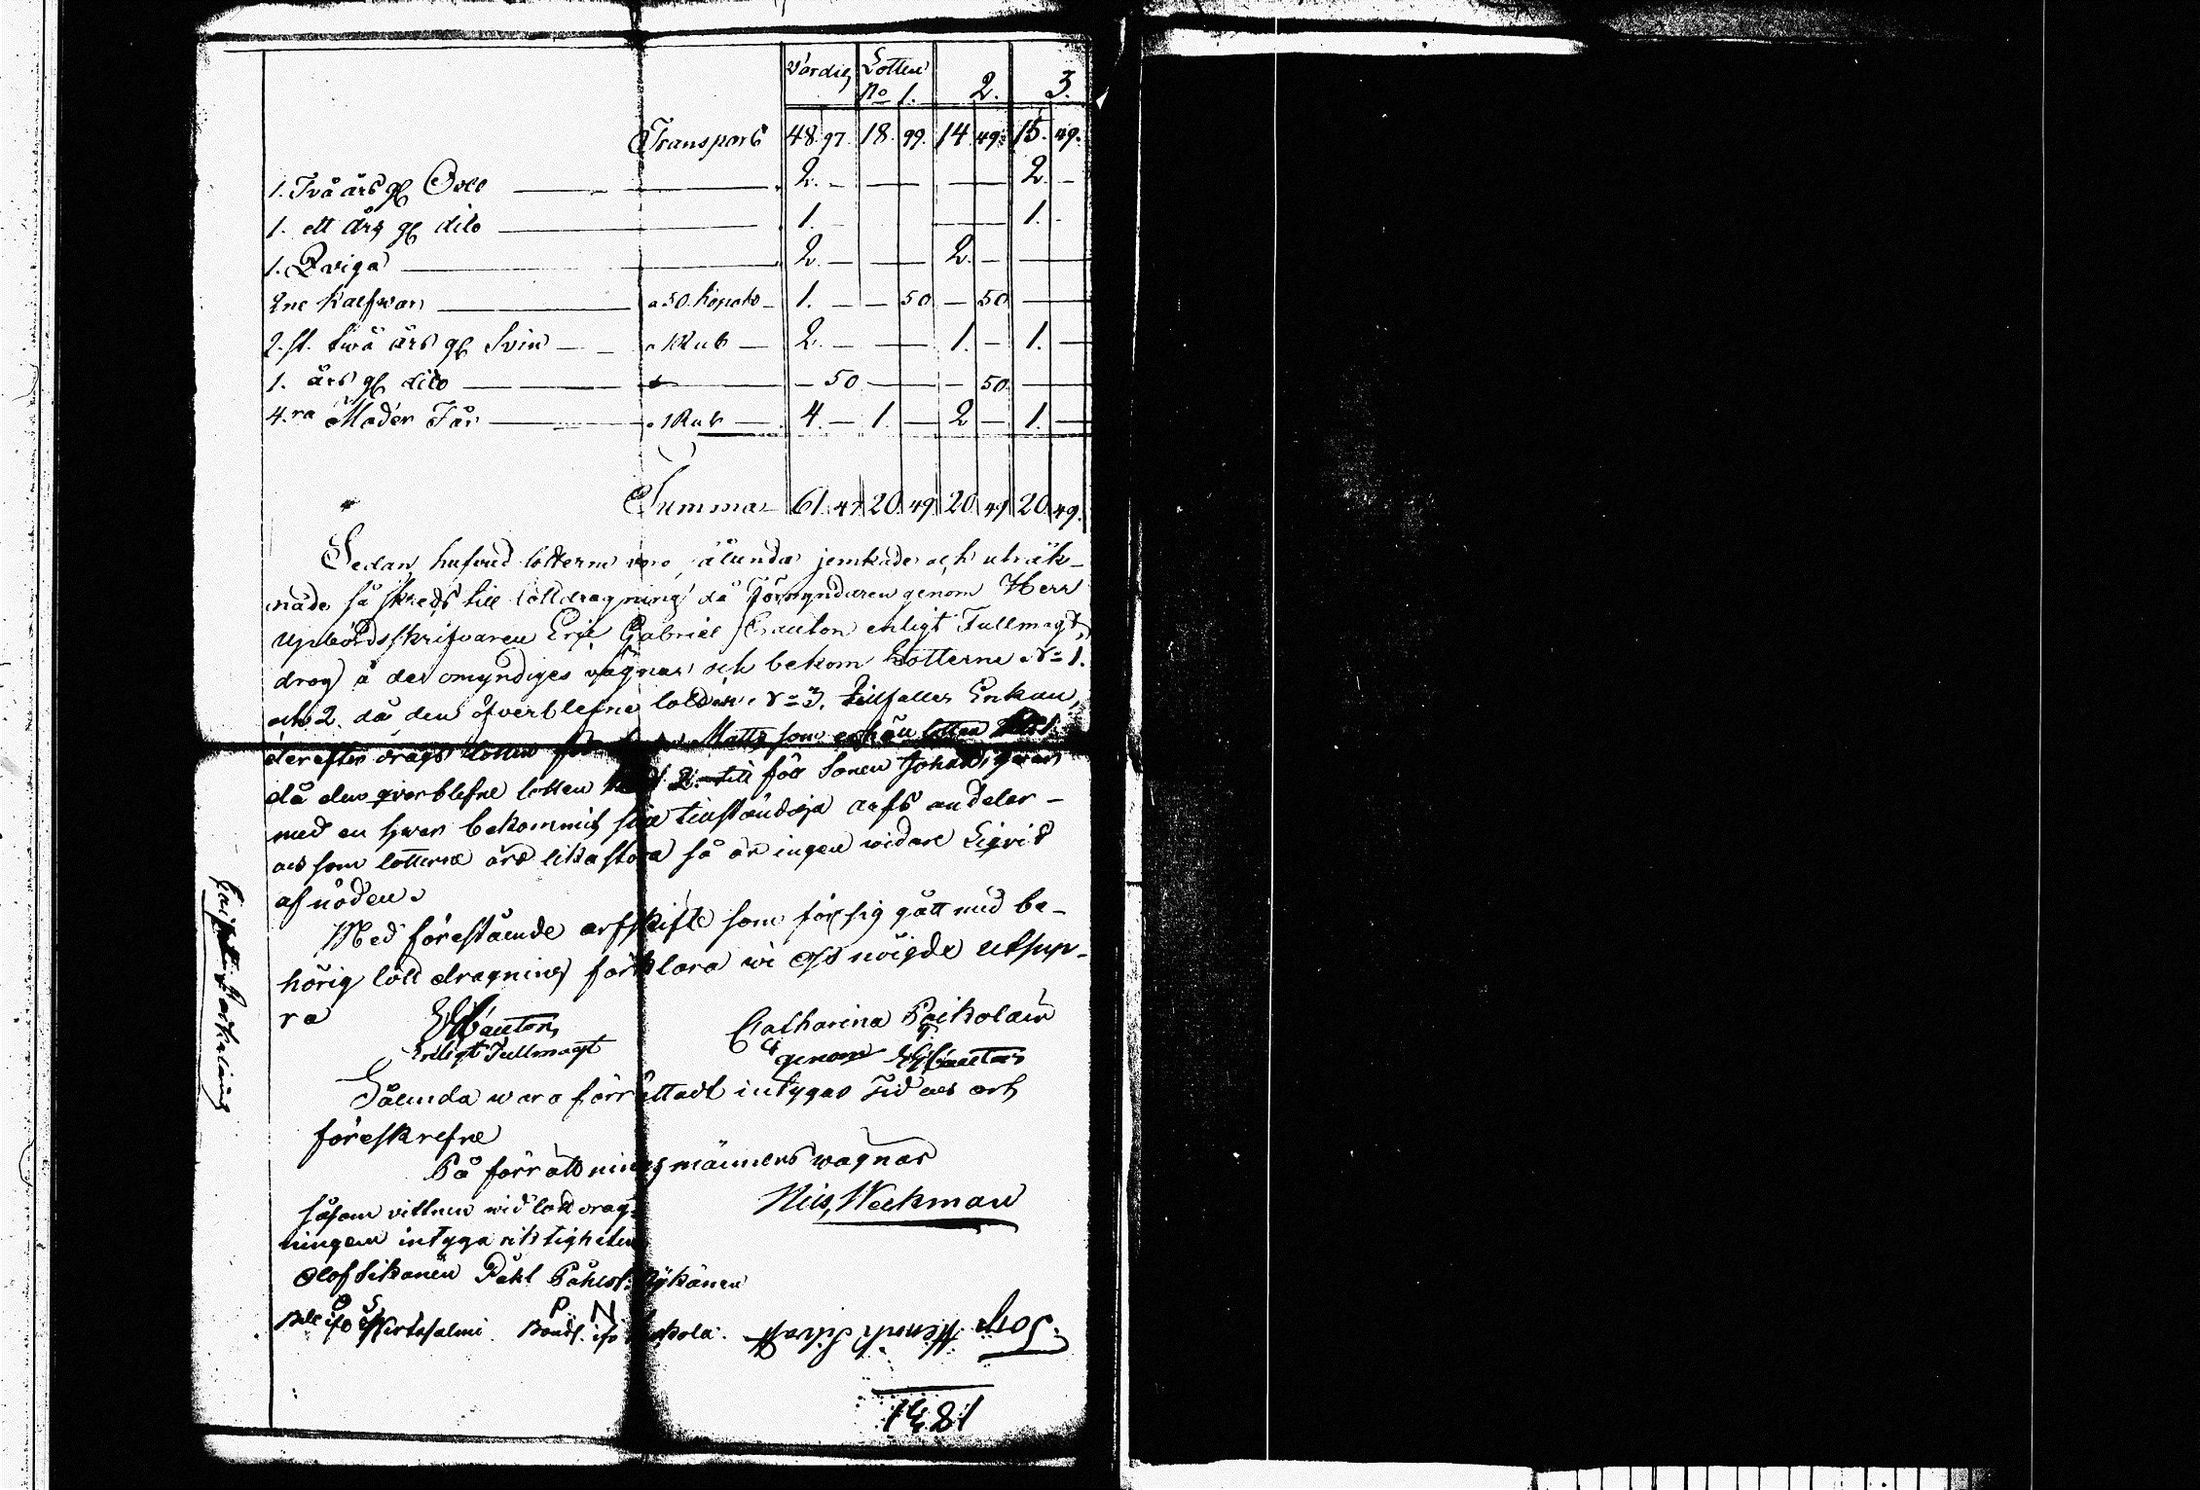 Värdie Lotten No 1. 2. 3.
Transport 48. 97. 18. 99. 14. 49. 15. 49.
1. Två års gl Oxe — 2. — — — 2. —
1. ett års gl dito — 1. — — 1. -
1. Qviga — 2. — — 2. — —
2ne Kalfwar — a 50. Kopek — 1. — — 50 — 50 —
2. st. twå års gl Svin — a 1 Rub — 2. — — 1. — 1. —
1. års gl dito — — 50 — — 50 —
4.ra Moder Får — a 1 Rub — 4. — 1. — 2 — 1. —
Summa 61. 47 20. 49 20. 49 20. 49.
Sedan hufvud lotterne voro sålunda jemkade och uträk-
nade så skreds till lottdragning då Förmyndaren genom Herr
Upbördsskrifvaren Eric Gabriel Cauton enligt Fullmagt,
drog å de omyndiges vägnar och bekom Lotterne No 1.
och 2. då den öfverblefne lotten No 3. tillfaller Enkan,
derefter drags lotten för Matts som erhöll lotten
då den qvarblefne lotten 2. till för Sonen Johan
med en hwar bekommit sine tillständiga arfs andelar -
als som lotterne äro lika stora så är ingen widare Liqvid
af nöden.
Med förestående arfskifte som för sig gått med be-
hörig lottdragning förklara wi Oss nöigde utsup-
ra
EGCauton
Enligt Fullmagt
Catharina Paikolain
genom EGCauton
Sålunda wara förrättadt intygas Tid als och
föreskrefne
På förrättningsmänners wägnar
Nils, Weckman
såsom vittnen wid lott drag-
ningen intyga riktigheten
Olof Sikanen Påhl Påhlss. Nykänen
O S P N
Bde ifr Wirtasalmi. Bonds. ifr
1481